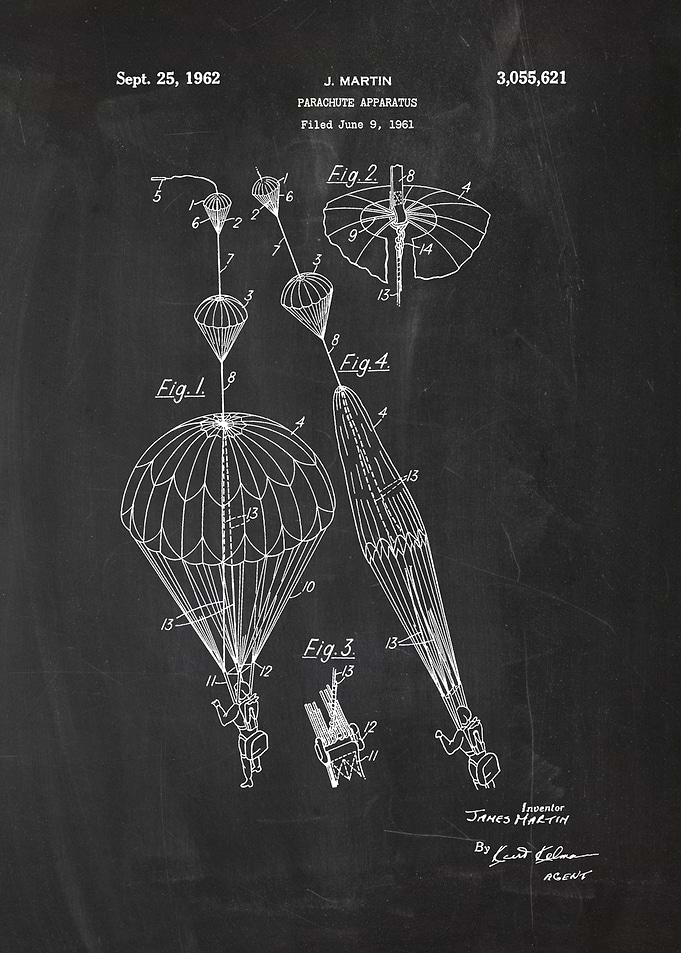 Sept. 25, 1962
J. MARTIN
3,055,621
PARACHUTE APPARATUS
Filed June 9, 1961
Fig. 2.
8
4
9
14
13
5
1
6
2
7
3
8
Fig. 1.
4
13
10
13
11
12
1
6
2
7
3
8
Fig. 4.
4
13
13
Fig. 3.
13
12
11
Inventor
JAMES MARTIN
By Kurt Kelman
AGENT